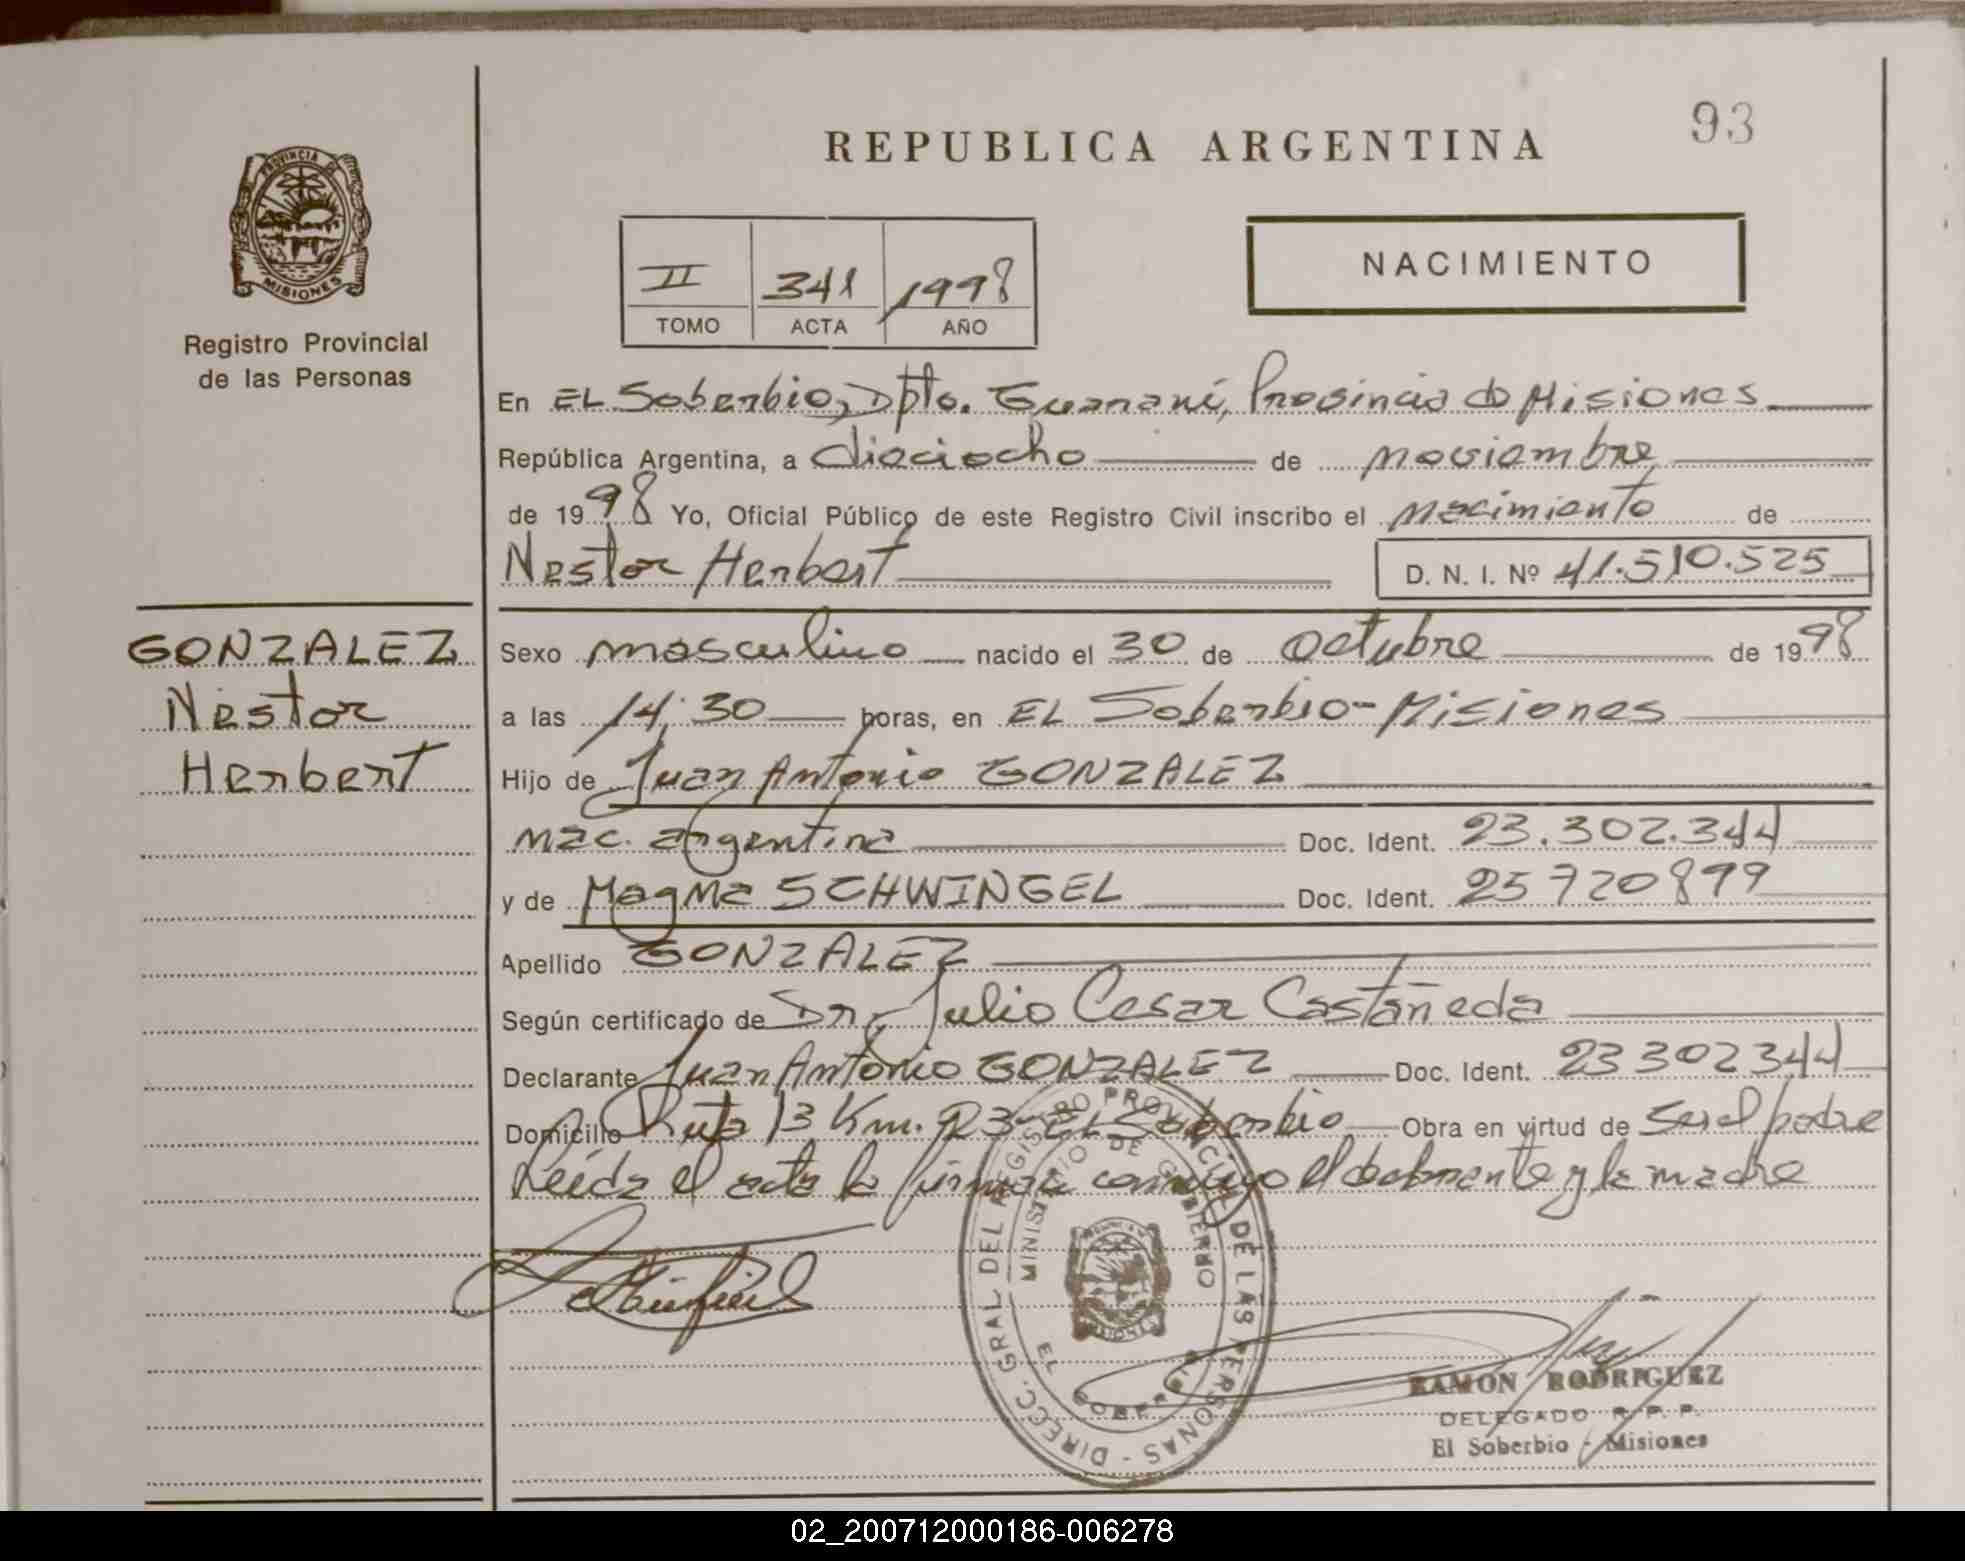 93
REPUBLICA ARGENTINA
PROVINCIA DE MISIONES
Registro Provincial
de las Personas
NACIMIENTO
II 341 1998
TOMO ACTA AÑO
En EL Soberbio, Dpto. Guaraní, Provincia de Misiones
República Argentina, a dieciocho de noviembre
de 1998 Yo, Oficial Público de este Registro Civil inscribo el nacimiento de
Nestor Herbert D. N. I. Nº 41.510.525
GONZALEZ
Nestor
Herbert
Sexo masculino nacido el 30 de octubre de 1998
a las 14:30 horas, en EL Soberbio-Misiones
Hijo de Juan Antonio GONZALEZ
nac. argentina Doc. Ident. 23.302.344
y de Magna SCHWINGEL Doc. Ident. 25720899
Apellido GONZALEZ
Según certificado de Dr. Julio Cesar Castañeda
Declarante Juan Antonio GONZALEZ Doc. Ident. 23302344
Domicilio Ruta 13 Km. 23-EL Soberbio Obra en virtud de ser el padre
Leída el acta la firman conmigo el declarante y la madre
DIRECC. GRAL DEL REGISTRO PROVINCIAL DE LAS PERSONAS -
MINISTERIO DE GOBIERNO
EL SOBERBIO
RAMON RODRIGUEZ
DELEGADO R. P. P.
El Soberbio - Misiones
02_200712000186-006278